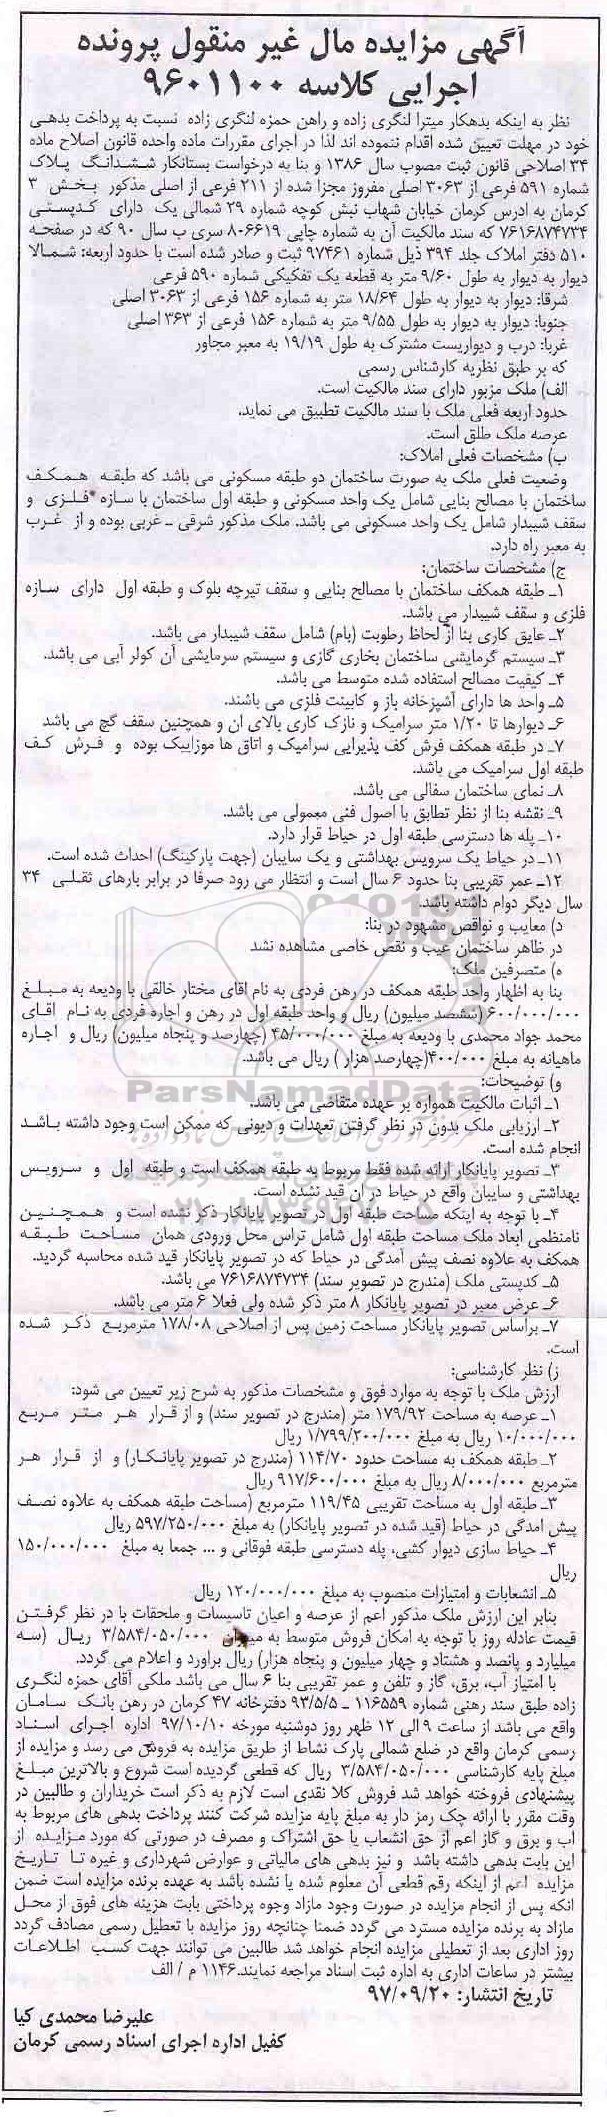 آگهی مزایده مال غیر منقول پرونده
اجرایی کلاسه ۹۶۰۱۱۰۰
نظر به اینکه بدهکار میترا لنگری زاده و راهن حمزه لنگری زاده نسبت به پرداخت بدهی
خود در مهلت تعیین شده اقدام ننموده اند لذا در اجرای مقررات ماده واحده قانون اصلاح ماده
۳۴ اصلاحی قانون ثبت مصوب سال ۱۳۸۶ و بنا به درخواست بستانکار ششدانگ پلاک
شماره ۵۹۱ فرعی از ۳۰۶۳ اصلی مفروز مجزا شده از ۲۱۱ فرعی از اصلی مذکور بخش ۳
کرمان به ادرس کرمان خیابان شهاب نبش کوچه شماره ۲۹ شمالی یک دارای کدپستی
۷۶۱۶۸۷۴۷۳۴ که سند مالکیت آن به شماره چاپی ۸۰۶۶۱۹ سری ب سال ۹۰ که در صفحه
۵۱۰ دفتر املاک جلد ۳۹۴ ذیل شماره ۹۷۴۶۱ ثبت و صادر شده است با حدود اربعه: شمالا
دیوار به دیوار به طول ۹/۶۰ متر به قطعه یک تفکیکی شماره ۵۹۰ فرعی
شرقا: دیوار به دیوار به طول ۱۸/۶۴ متر به شماره ۱۵۶ فرعی از ۳۰۶۳ اصلی
جنوبا: دیوار به دیوار به طول ۹/۵۵ متر به شماره ۱۵۶ فرعی از ۳۶۳ اصلی
غربا: درب و دیواریست مشترک به طول ۱۹/۱۹ به معبر مجاور
که بر طبق نظریه کارشناس رسمی
الف) ملک مزبور دارای سند مالکیت است.
حدود اربعه فعلی ملک با سند مالکیت تطبیق می نماید.
عرصه ملک طلق است.
ب) مشخصات فعلی املاک:
وضعیت فعلی ملک به صورت ساختمان دو طبقه مسکونی می باشد که طبقه همکف
ساختمان با مصالح بنایی شامل یک واحد مسکونی و طبقه اول ساختمان با سازه فلزی و
سقف شیبدار شامل یک واحد مسکونی می باشد. ملک مذکور شرقی ـ غربی بوده و از غرب
به معبر راه دارد.
ج) مشخصات ساختمان:
۱ـ طبقه همکف ساختمان با مصالح بنایی و سقف تیرچه بلوک و طبقه اول دارای سازه
فلزی و سقف شیبدار می باشد.
۲ـ عایق کاری بنا از لحاظ رطوبت (بام) شامل سقف شیبدار می باشد.
۳ـ سیستم گرمایشی ساختمان بخاری گازی و سیستم سرمایشی آن کولر آبی می باشد.
۴ـ کیفیت مصالح استفاده شده متوسط می باشد.
۵ـ واحد ها دارای آشپزخانه باز و کابینت فلزی می باشند.
۶ـ دیوارها تا ۱/۲۰ متر سرامیک و نازک کاری بالای ان و همچنین سقف گچ می باشد
۷ـ در طبقه همکف فرش کف پذیرایی سرامیک و اتاق ها موزاییک بوده و فرش کف
طبقه اول سرامیک می باشد.
۸ـ نمای ساختمان سفالی می باشد.
۹ـ نقشه بنا از نظر تطابق با اصول فنی معمولی می باشد.
۱۰ـ پله ها دسترسی طبقه اول در حیاط قرار دارد.
۱۱ـ در حیاط یک سرویس بهداشتی و یک سایبان (جهت پارکینگ) احداث شده است.
۱۲ـ عمر تقریبی بنا حدود ۶ سال است و انتظار می رود صرفا در برابر بارهای ثقلی ۳۴
سال دیگر دوام داشته باشد.
د) معایب و نواقص مشهود در بنا:
در ظاهر ساختمان عیب و نقص خاصی مشاهده نشد
ه) متصرفین ملک:
بنا به اظهار واحد طبقه همکف در رهن فردی به نام اقای مختار خالقی با ودیعه به مبلغ
۶۰۰/۰۰۰/۰۰۰ (ششصد میلیون) ریال و واحد طبقه اول در رهن و اجاره فردی به نام اقای
محمد جواد محمدی با ودیعه به مبلغ ۴۵/۰۰۰/۰۰۰ (چهارصد و پنجاه میلیون) ریال و اجاره
ماهیانه به مبلغ ۴۰۰/۰۰۰(چهارصد هزار ) ریال می باشد.
و) توضیحات:
۱ـ اثبات مالکیت همواره بر عهده متقاضی می باشد.
۲ـ ارزیابی ملک بدون در نظر گرفتن تعهدات و دیونی که ممکن است وجود داشته باشد
انجام شده است.
۳ـ تصویر پایانکار ارائه شده فقط مربوط به طبقه همکف است و طبقه اول و سرویس
بهداشتی و سایبان واقع در حیاط در ان قید نشده است.
۴ـ با توجه به اینکه مساحت طبقه اول در تصویر پایانکار ذکر نشده است و همچنین
نامنظمی ابعاد ملک مساحت طبقه اول شامل تراس محل ورودی همان مساحت طبقه
همکف به علاوه نصف پیش آمدگی در حیاط که در تصویر پایانکار قید شده محاسبه گردید.
۵ـ کدپستی ملک (مندرج در تصویر سند) ۷۶۱۶۸۷۴۷۳۴ می باشد.
۶ـ عرض معبر در تصویر پایانکار ۸ متر ذکر شده ولی فعلا ۶ متر می باشد.
۷ـ براساس تصویر پایانکار مساحت زمین پس از اصلاحی ۱۷۸/۰۸ مترمربع ذکر شده
است.
ز) نظر کارشناسی:
ارزش ملک با توجه به موارد فوق و مشخصات مذکور به شرح زیر تعیین می شود:
۱ـ عرصه به مساحت ۱۷۹/۹۲ متر (مندرج در تصویر سند) و از قرار هر متر مربع
۱۰/۰۰۰/۰۰۰ ریال به مبلغ ۱/۷۹۹/۲۰۰/۰۰۰ ریال
۲ـ طبقه همکف به مساحت حدود ۱۱۴/۷۰ (مندرج در تصویر پایانکار) و از قرار هر
مترمربع ۸/۰۰۰/۰۰۰ ریال به مبلغ ۹۱۷/۶۰۰/۰۰۰ ریال
۳ـ طبقه اول به مساحت تقریبی ۱۱۹/۴۵ مترمربع (مساحت طبقه همکف به علاوه نصف
پیش امدگی در حیاط (قید شده در تصویر پایانکار) به مبلغ ۵۹۷/۲۵۰/۰۰۰ ریال
۴ـ حیاط سازی دیوار کشی، پله دسترسی طبقه فوقانی و ... جمعا به مبلغ ۱۵۰/۰۰۰/۰۰۰
ریال
۵ـ انشعابات و امتیازات منصوب به مبلغ ۱۲۰/۰۰۰/۰۰۰ ریال
بنابر این ارزش ملک مذکور اعم از عرصه و اعیان تاسیسات و ملحقات با در نظر گرفتن
قیمت عادله روز با توجه به امکان فروش متوسط به میزان ۳/۵۸۴/۰۵۰/۰۰۰ ریال (سه
میلیارد و پانصد و هشتاد و چهار میلیون و پنجاه هزار) ریال براورد و اعلام می گردد.
با امتیاز آب، برق، گاز و تلفن و عمر تقریبی بنا ۶ سال می باشد ملکی آقای حمزه لنگری
زاده طبق سند رهنی شماره ۱۱۶۵۵۹ ـ ۹۳/۵/۵ دفترخانه ۴۷ کرمان در رهن بانک سامان
واقع می باشد از ساعت ۹ الی ۱۲ ظهر روز دوشنبه مورخه ۹۷/۱۰/۱۰ اداره اجرای اسناد
رسمی کرمان واقع در ضلع شمالی پارک نشاط از طریق مزایده به فروش می رسد و مزایده از
مبلغ پایه کارشناسی ۳/۵۸۴/۰۵۰/۰۰۰ ریال که قطعی گردیده است شروع و بالاترین مبلغ
پیشنهادی فروخته خواهد شد فروش کلا نقدی است لازم به ذکر است خریداران و طالبین در
وقت مقرر با ارائه چک رمز دار به مبلغ پایه مزایده شرکت کنند پرداخت بدهی های مربوط به
اب و برق و گاز اعم از حق انشعاب یا حق اشتراک و مصرف در صورتی که مورد مزایده از
این بابت بدهی داشته باشد و نیز بدهی های مالیاتی و عوارض شهرداری و غیره تا تاریخ
مزایده اعم از اینکه رقم قطعی آن معلوم شده یا نشده باشد به عهده برنده مزایده است ضمن
انکه پس از انجام مزایده در صورت وجود مازاد وجوه پرداختی بابت هزینه های فوق از محل
مازاد به برنده مزایده مسترد می گردد ضمنا چنانچه روز مزایده با تعطیل رسمی مصادف گردد
روز اداری بعد از تعطیلی مزایده انجام خواهد شد طالبین می توانند جهت کسب اطلاعات
بیشتر در ساعات اداری به اداره ثبت اسناد مراجعه نمایند.۱۱۴۶ م / الف
تاریخ انتشار: ۹۷/۰۹/۲۰
علیرضا محمدی کیا
کفیل اداره اجرای اسناد رسمی کرمان
ParsNamadData